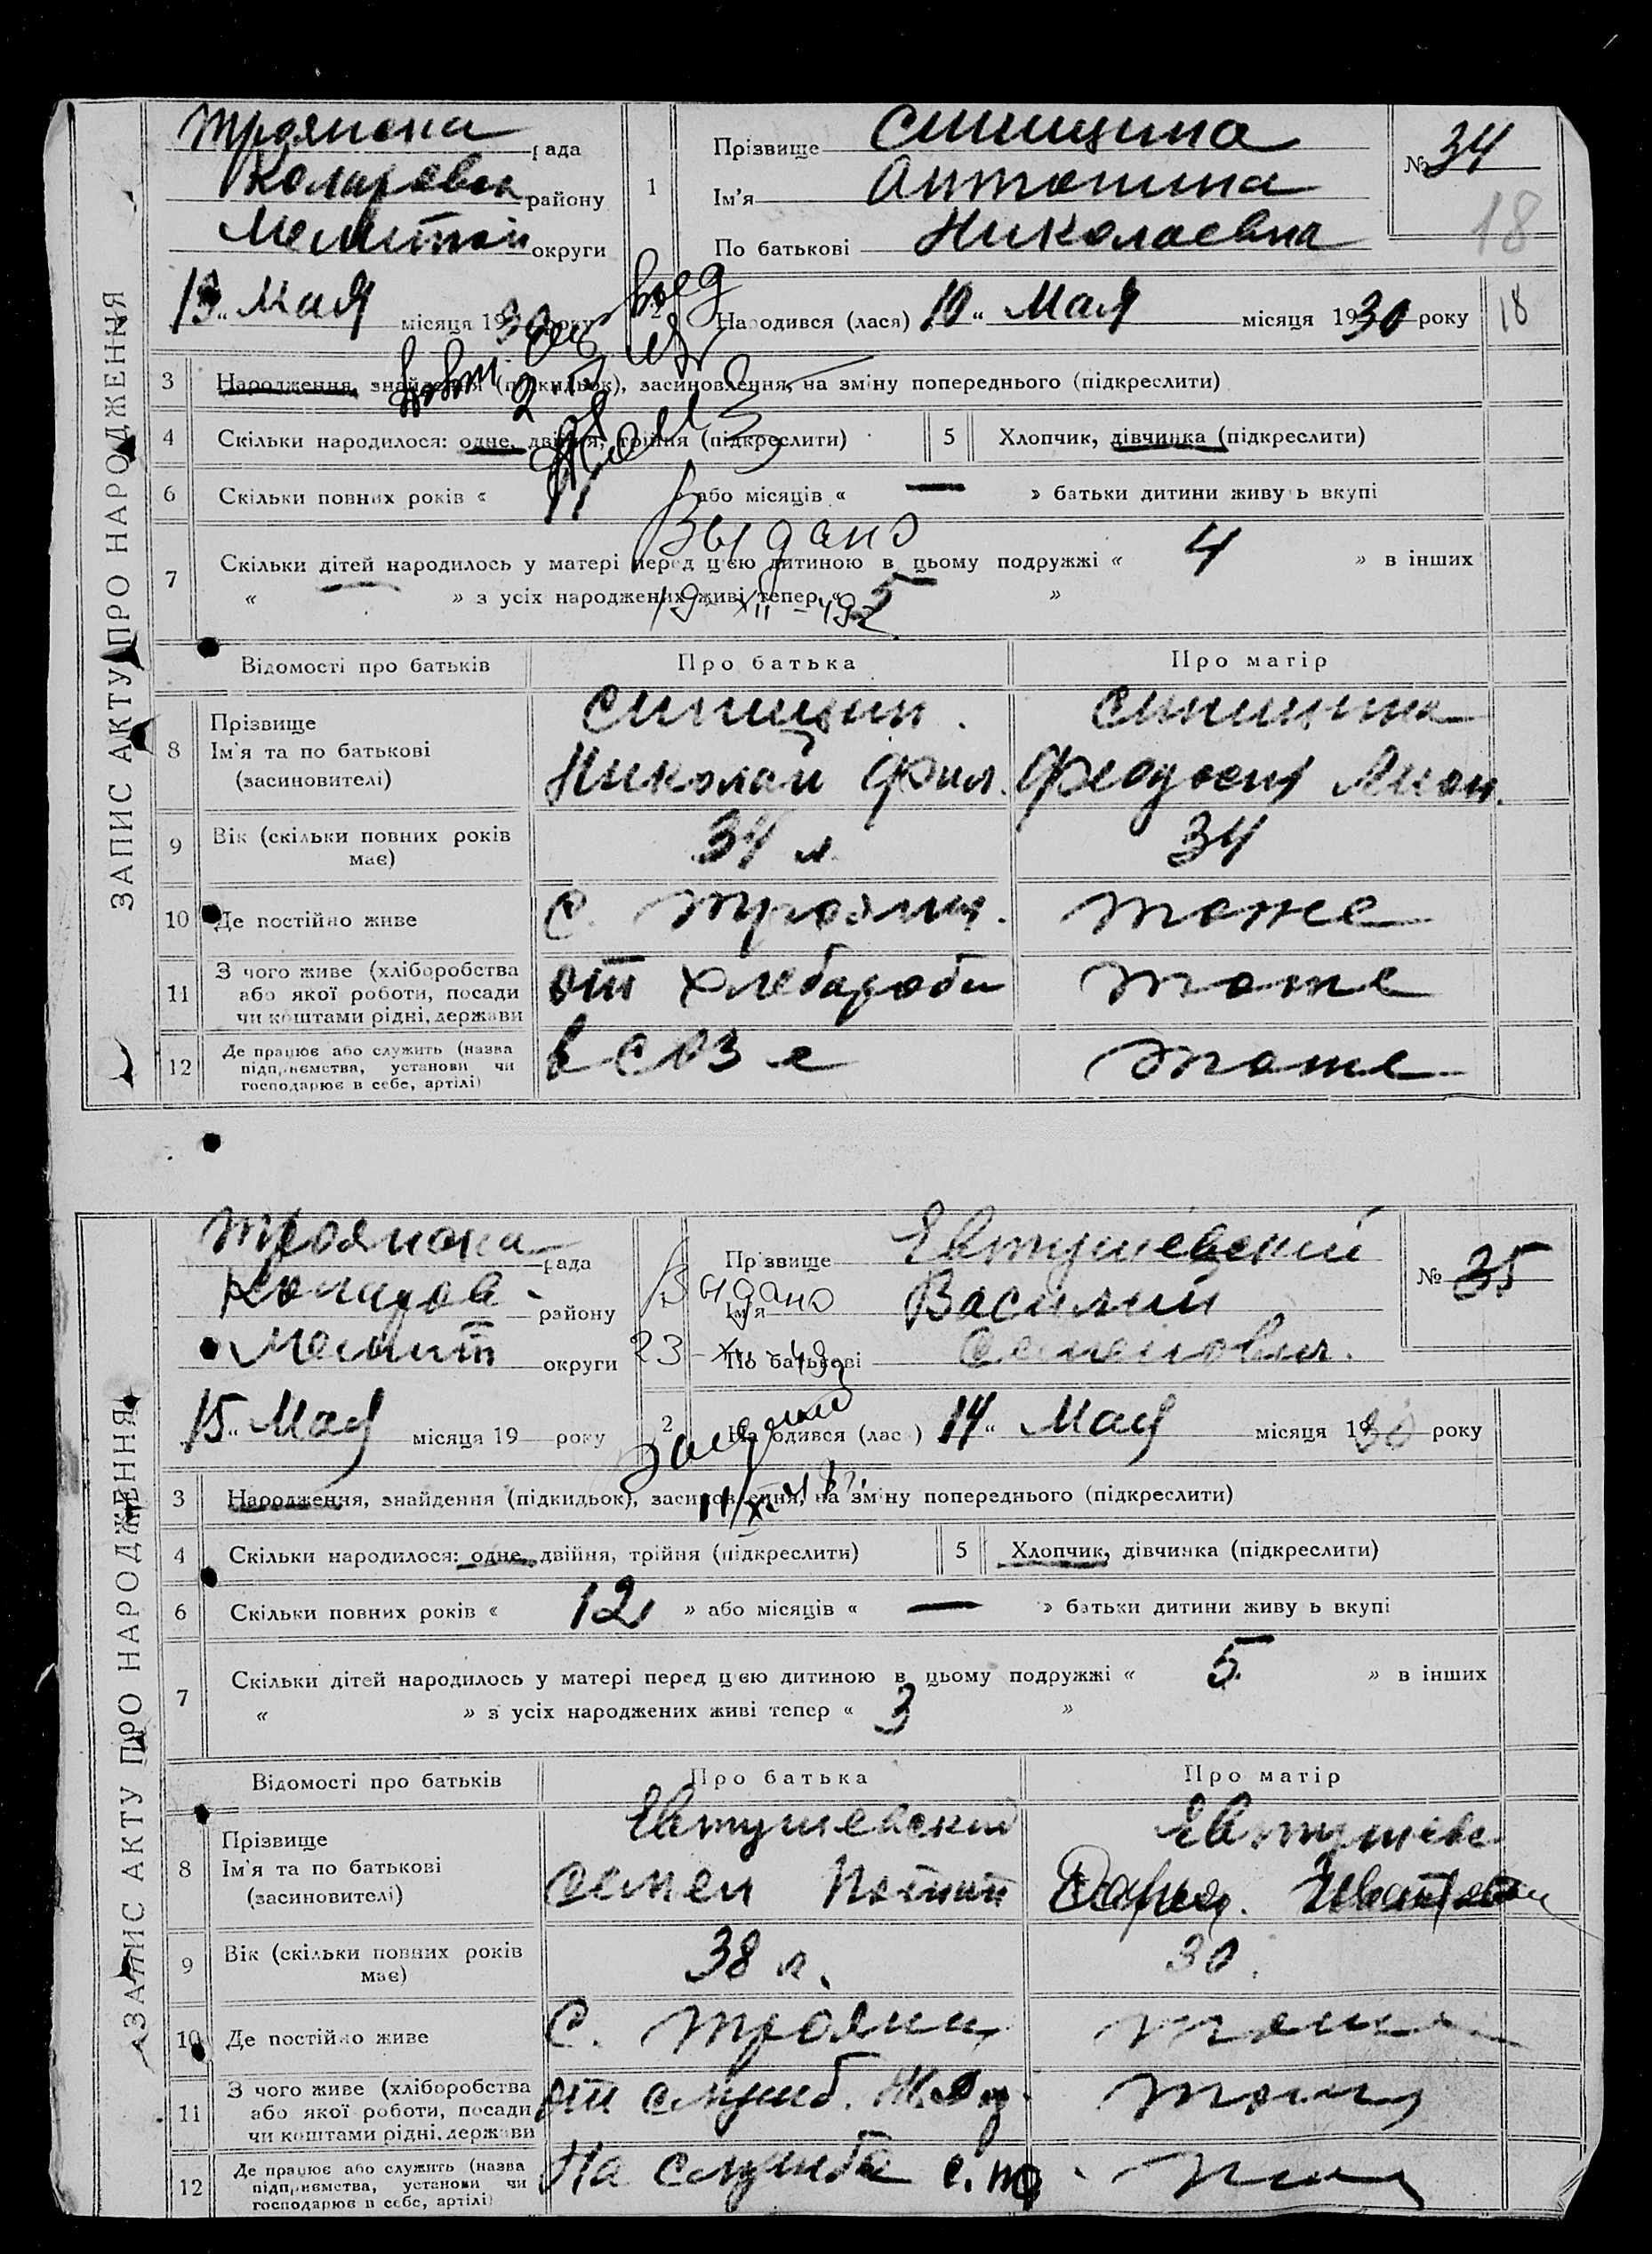 ЗАПИС АКТУ ПРО НАРОДЖЕННЯ
Троянска рада
Коларовск району
Мелитоп округи
1
Прізвище Синицина
Ім'я Антонина
По батькові Николаевна
№ 34
18
13 " Мая місяця 1930 року
2
Народився (лася) 10 " Мая місяця 1930 року
18
3 Народження, знайдення (підкидьок), засиновлення, на зміну попереднього (підкреслити)
4 Скільки народилося: одне, двійня, трійня (підкреслити)
5 Хлопчик, дівчинка (підкреслити)
6 Скільки повних років « 11 » або місяців « — » батьки дитини живуть вкупі
Выдано
7 Скільки дітей народилось у матері перед цією дитиною в цьому подружжі « 4 » в інших
« — » з усіх народжених живі тепер « 5 »
19 - XII - 49
Відомості про батьків
Про батька
Про матір
8 Прізвище
Ім'я та по батькові
(засновителі)
Синицин
Николай Фил.
Синицина
Феодосия
9 Вік (скільки повних років має)
34 л.
34
10 Де постійно живе
с. Трояны.
тоже
11 З чого живе (хліборобства
або якої роботи, посади
чи коштами рідні, держави
от хлебороби
тоже
12 Де працює або служить (назва
підприємства, установи чи
господарює в себе, артілі)
в СОЗ е
тоже
ЗАПИС АКТУ ПРО НАРОДЖЕННЯ
Троянска рада
Коларов району
Мелит округи
Прізвище Евтушевский
Ім'я Василий
По батькові Семенович.
№ 35
Выдано
23 - XII - 49
15 " Мая місяця 19 року
2
Народився (лас ) 14 " Мая місяця 1930 року
3 Народження, знайдення (підкидьок), засиновлення, на зміну попереднього (підкреслити)
4 Скільки народилося: одне, двійня, трійня (підкреслити)
5 Хлопчик, дівчинка (підкреслити)
6 Скільки повних років « 12 » або місяців « — » батьки дитини живуть вкупі
7 Скільки дітей народилось у матері перед цією дитиною в цьому подружжі « 5 » в інших
« » з усіх народжених живі тепер « 3 »
Відомості про батьків
Про батька
Про матір
8 Прізвище
Ім'я та по батькові
(засиновителі)
Евтушевский
Семен
Евтушевс
Дарья.
9 Вік (скільки повних років має)
38 л.
30.
10 Де постійно живе
с. Трояны
тоже
11 З чого живе (хліборобства
або якої роботи, посади
чи коштами рідні, держави
от служб.
тоже
12 Де працює або служить (назва
підприємства, установи чи
господарює в себе, артілі)
На службе